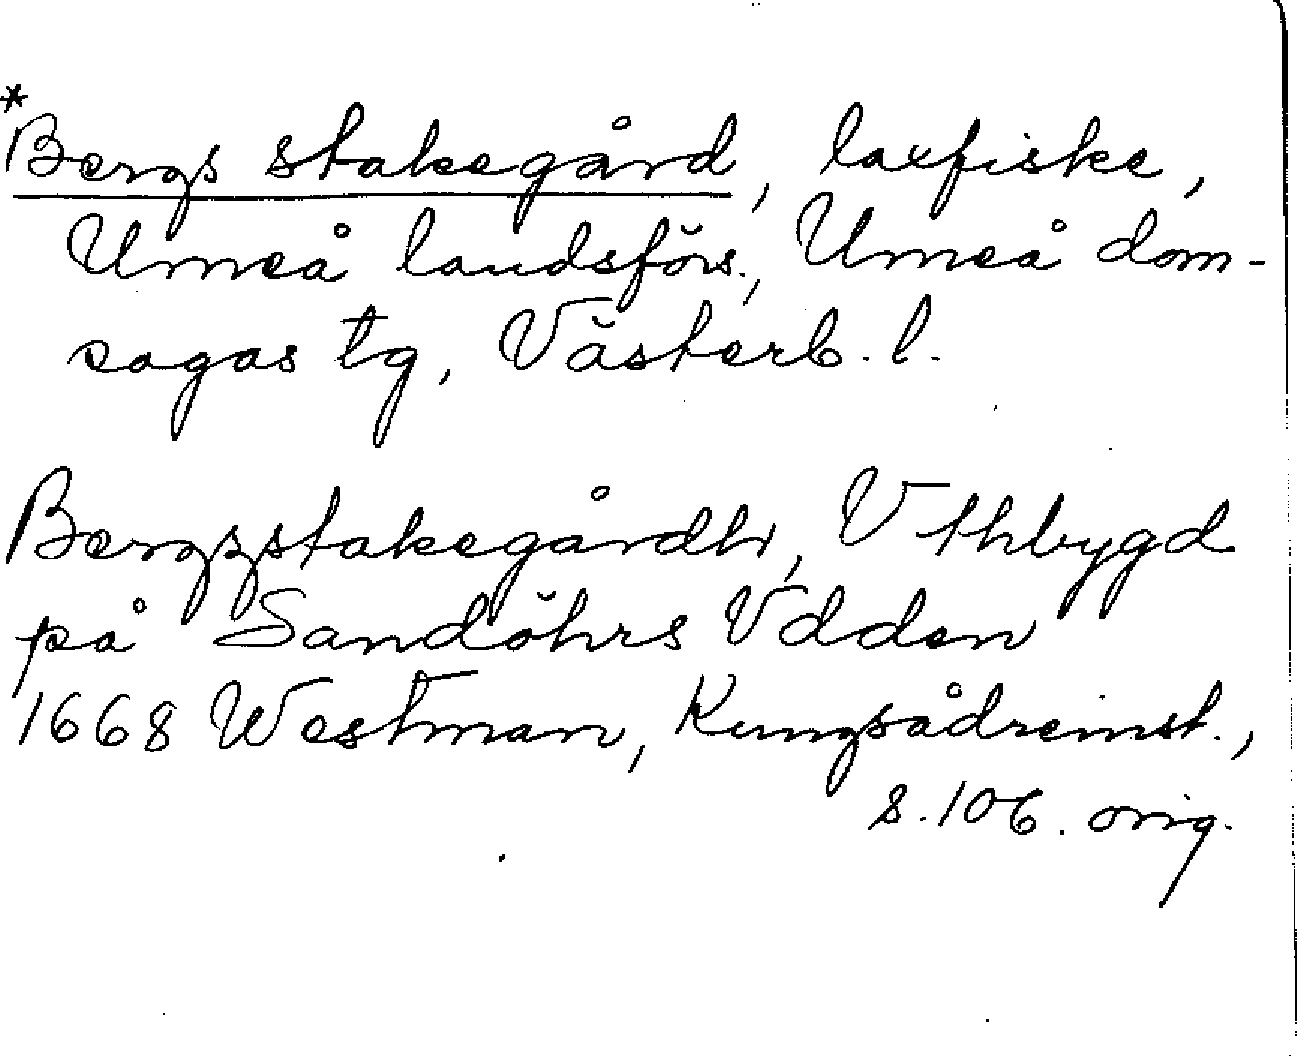 *Bergs stakegård, laxfiske,
Umeå landsförs., Umeå dom-
sagas tg, Västerb. l.
Bergzstakegårdh, Vthbygd
på Sandöhrs Vdden
1668 Westman, Kungsådreinst.,
s. 106. orig.